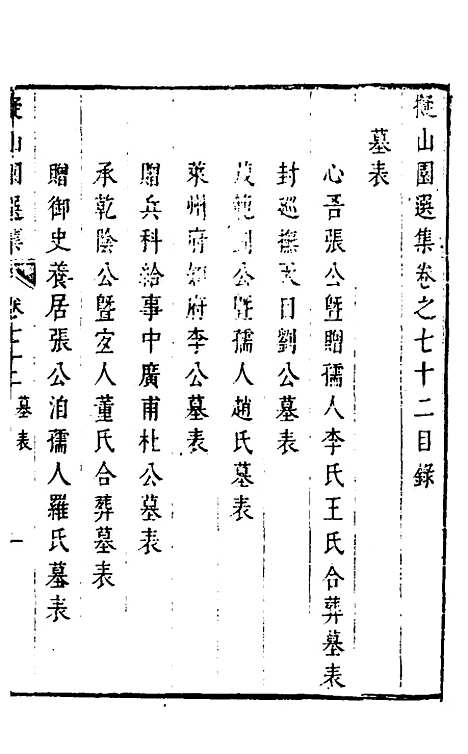 擬山園選集卷之七十二目錄
墓表
心吾張公曁贈孺人李氏王氏合葬墓表
封巡撫天日劉公墓表
範周公曁孺人趙氏墓表
萊州府知府李公墓表
贈兵科給事中廣甫杜公墓表
承乾陰公曁宜人董氏合葬墓表
贈御史養居張公洎孺人羅氏墓表
擬山園選集 卷七十二 墓表 一